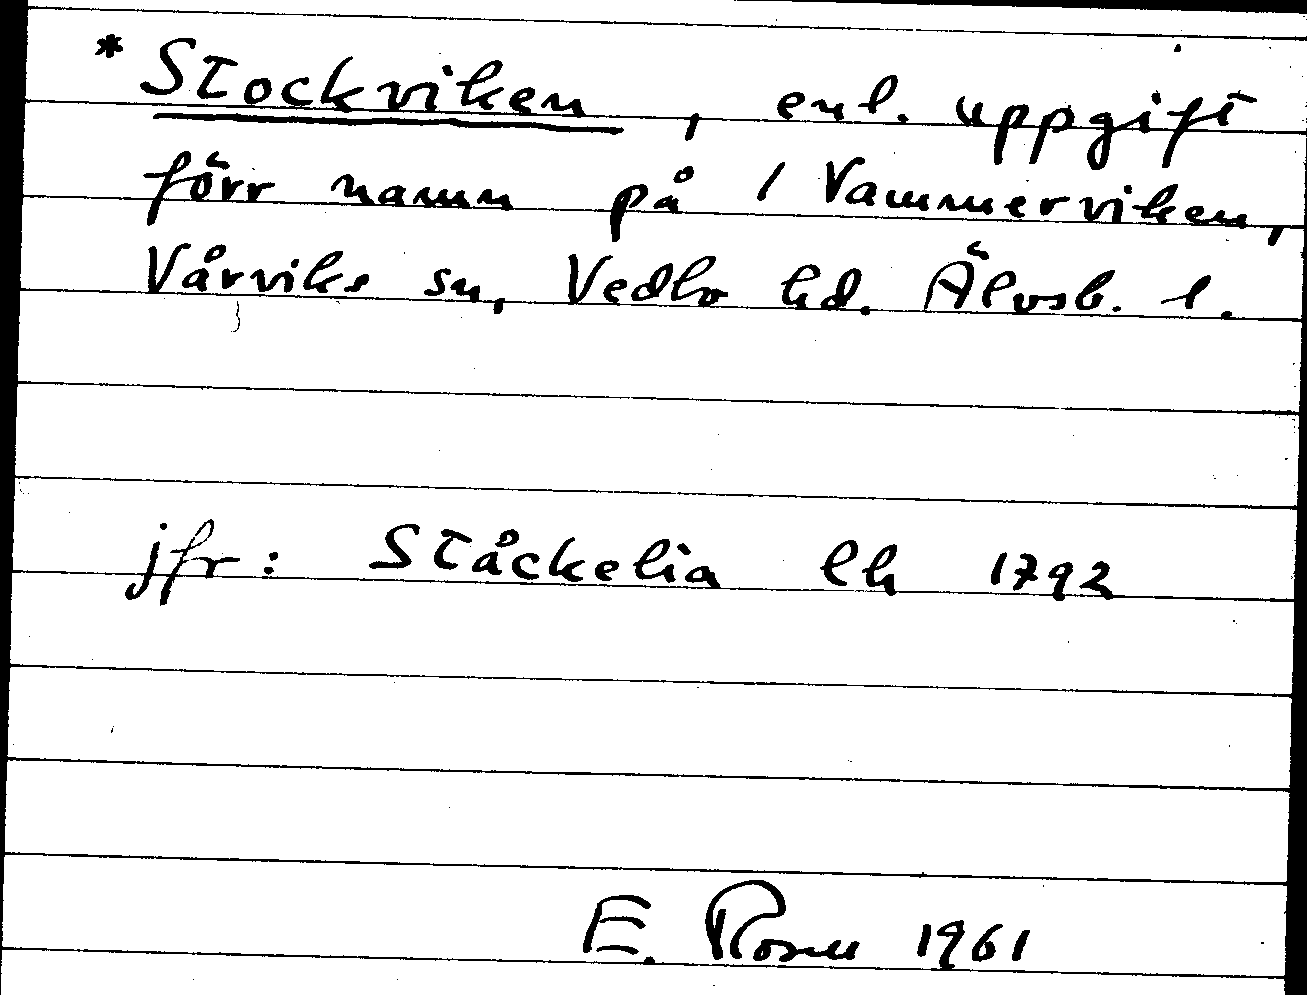 * Stockviken, enl. uppgift
förr namn på 1 Vammerviken,
Vårviks sn, Vedbo hd. Älvsb. l.
jfr: Ståckelia lh 1792
E. Rosell 1961